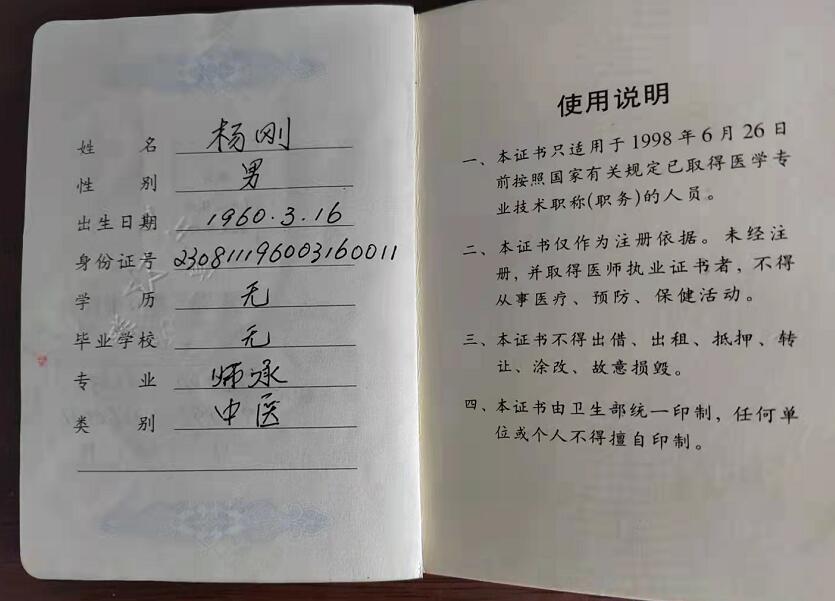 姓 名 杨刚
性 别 男
出生日期 1960.3.16
身份证号 230811196003160011
学 历 无
毕业学校 无
专 业 师承
类 别 中医
使用说明
一、本证书只适用于1998年6月26日
前按照国家有关规定已取得医学专
业技术职称(职务)的人员。
二、本证书仅作为注册依据。未经注
册,并取得医师执业证书者,不得
从事医疗、预防、保健活动。
三、本证书不得出借、出租、抵押、转
让、涂改、故意损毁。
四、本证书由卫生部统一印制,任何单
位或个人不得擅自印制。